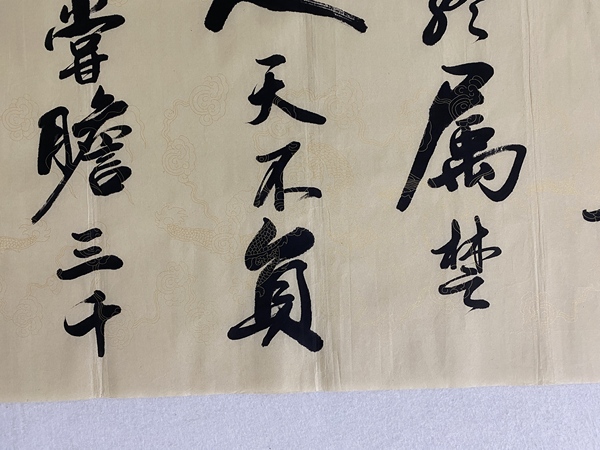 属楚
人天不負
嘗膽三千